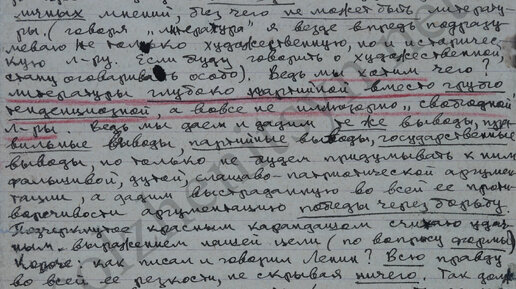 личных мнений, без чего не может быть литерату-
ры. (говоря „литература" я везде впредь подразу
меваю не только художественную, но и историче-
скую л-ру. Если буду говорить художественной,
стану оговаривать особо). Ведь мы хотим чего?
литературы глубоко партийной вместо грубо
тенденциозной, а вовсе не иллюзорно „свободной"
л-ры. Ведь мы даем и дадим те же выводы, пра
вильные выводы, партийные выводы, государственные
выводы, но только не будем придумывать к ним
фальшивой, дутой, слащаво-патриотической аргумен
тации, а дадим выстраданную во всей ее проти
воречивости аргументацию победы через борьбу.
Подчеркнутое красным карандашом считаю удач
ным выражением нашей цели (по вопросу формы)
Короче: как писал и говорил Ленин? Всю правду
во всей ее резкости, не скрывая ничего. Так долж